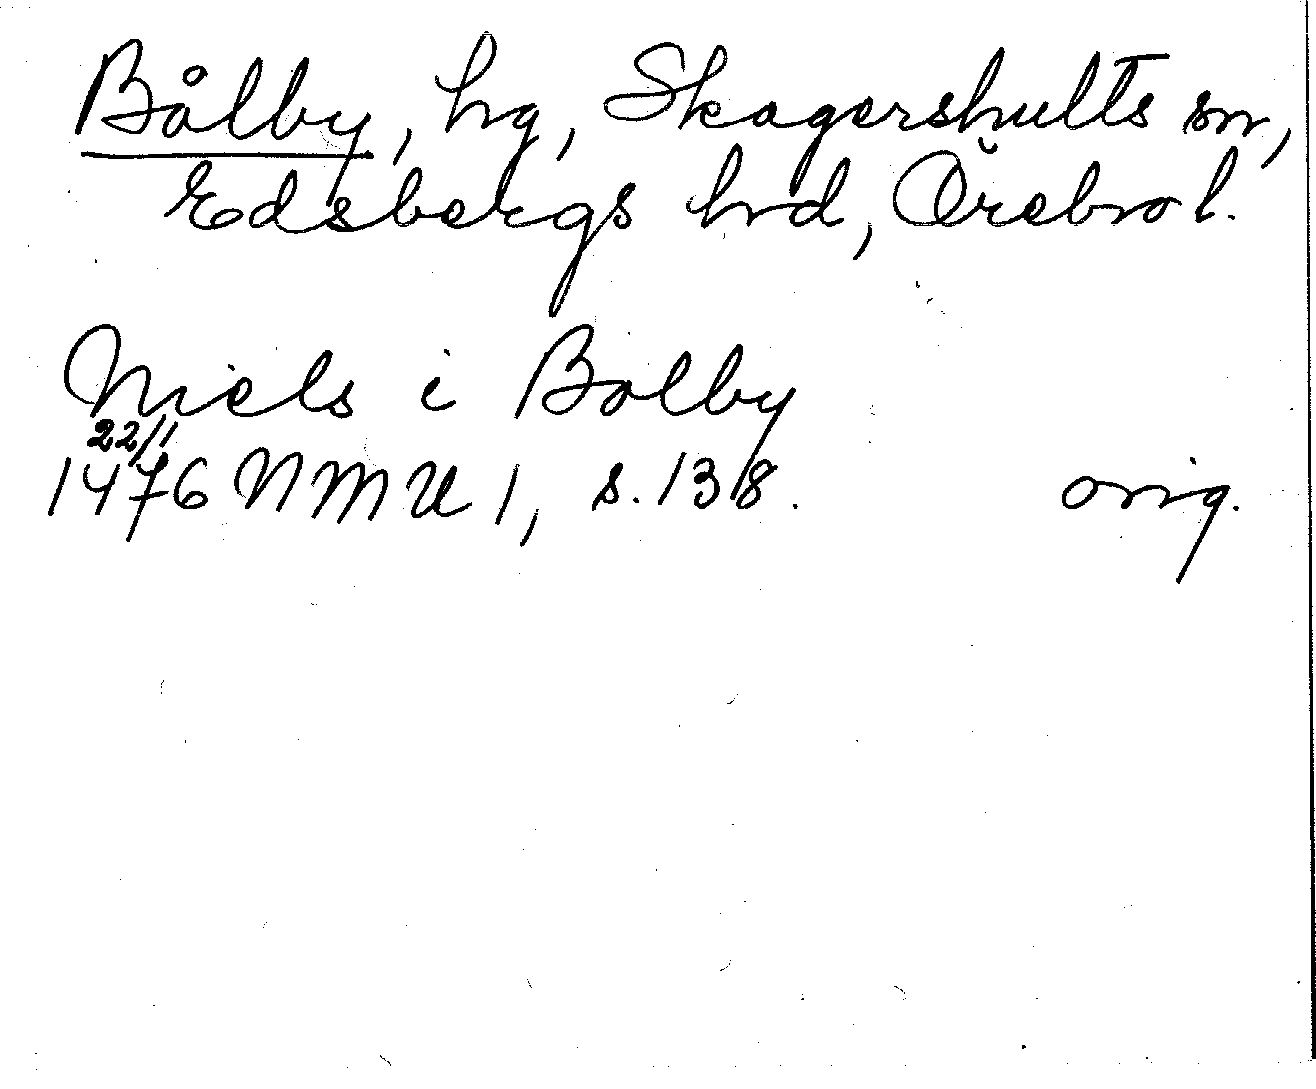 Bålby, hg, Skagershults sn,
Edsbergs hrd, Örebro l.
Niels i Bolby
22/11
1476 NMU 1, s. 138. orig.